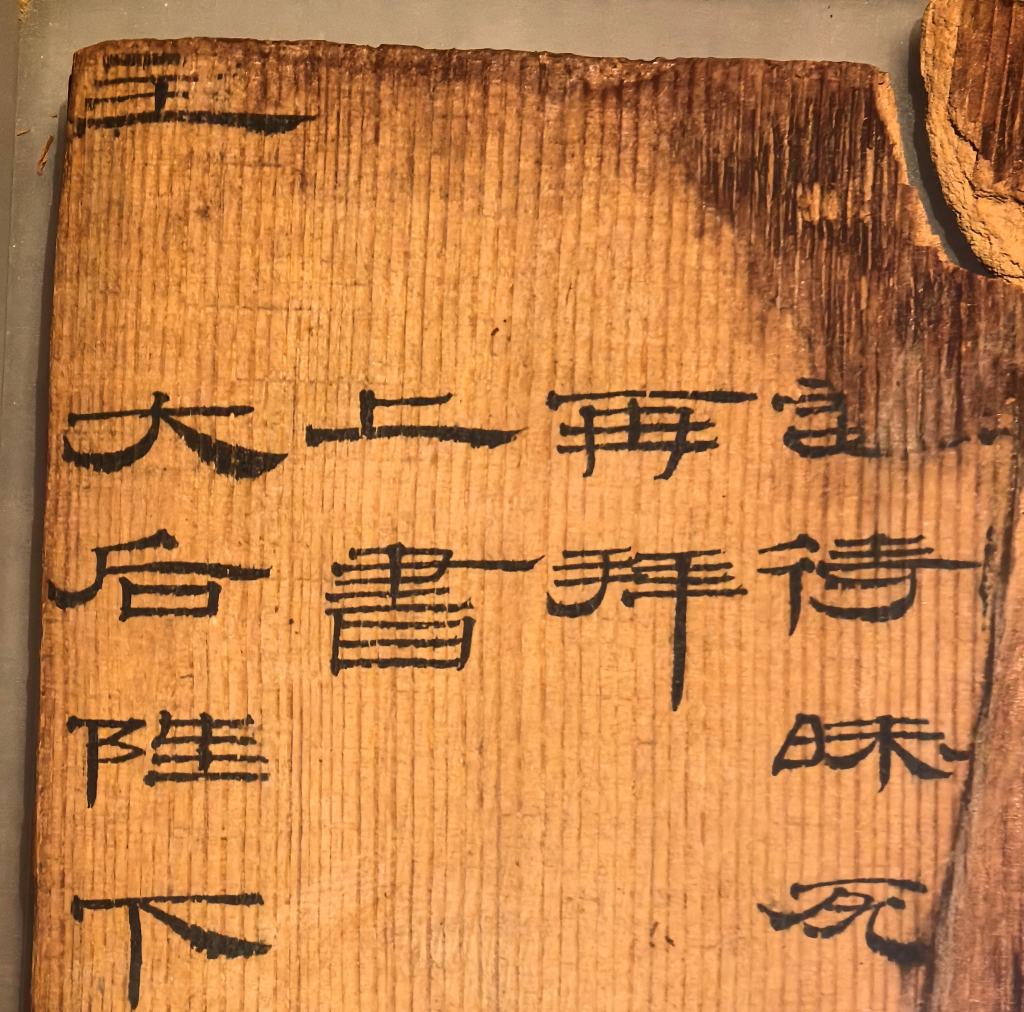 妾待昧死
再拜
上書
大后陛下